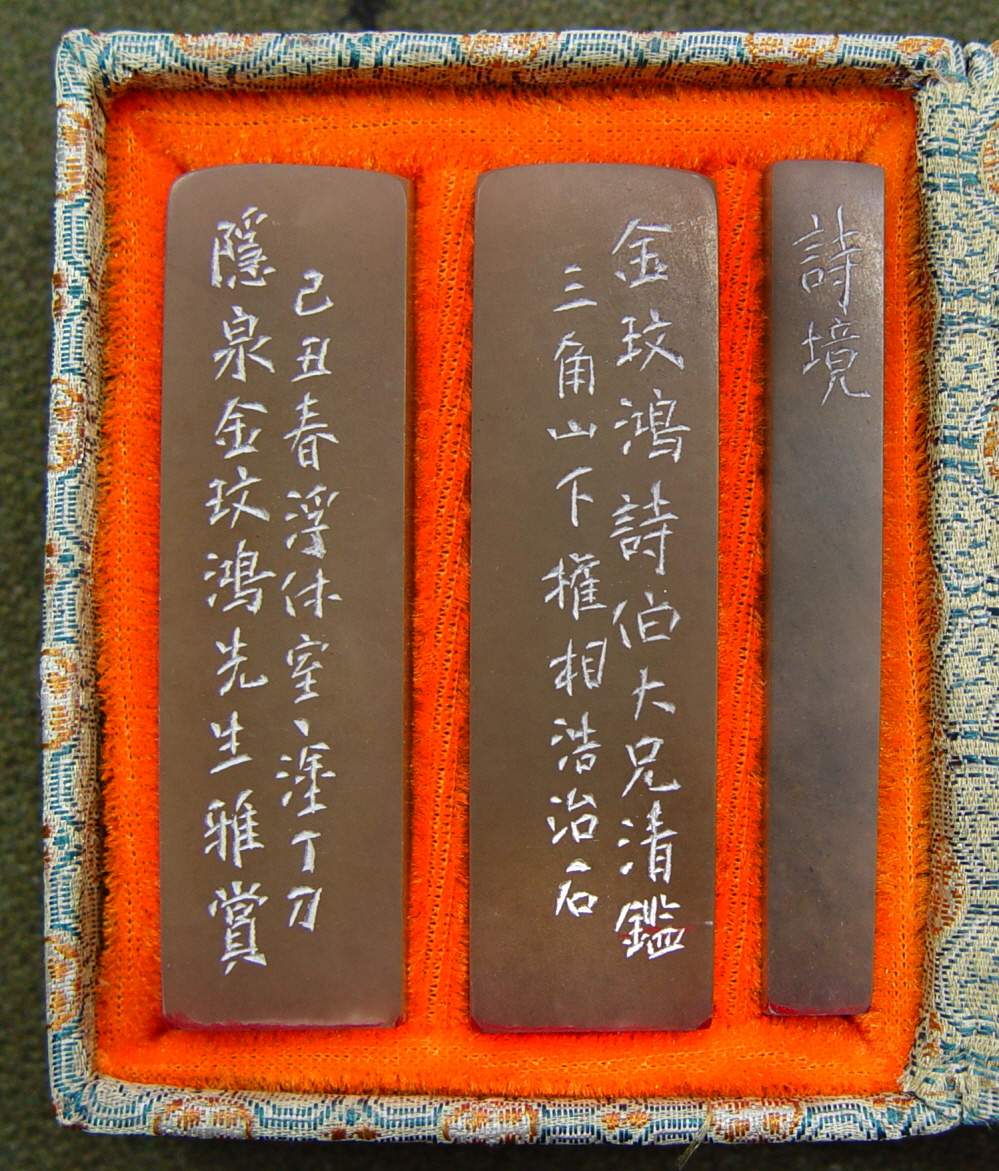 詩境
金玟鴻詩伯大兄清鑑
三角山下權相浩治石
隱泉金玟鴻先生雅賞
己丑春浮休室、塗丁刀